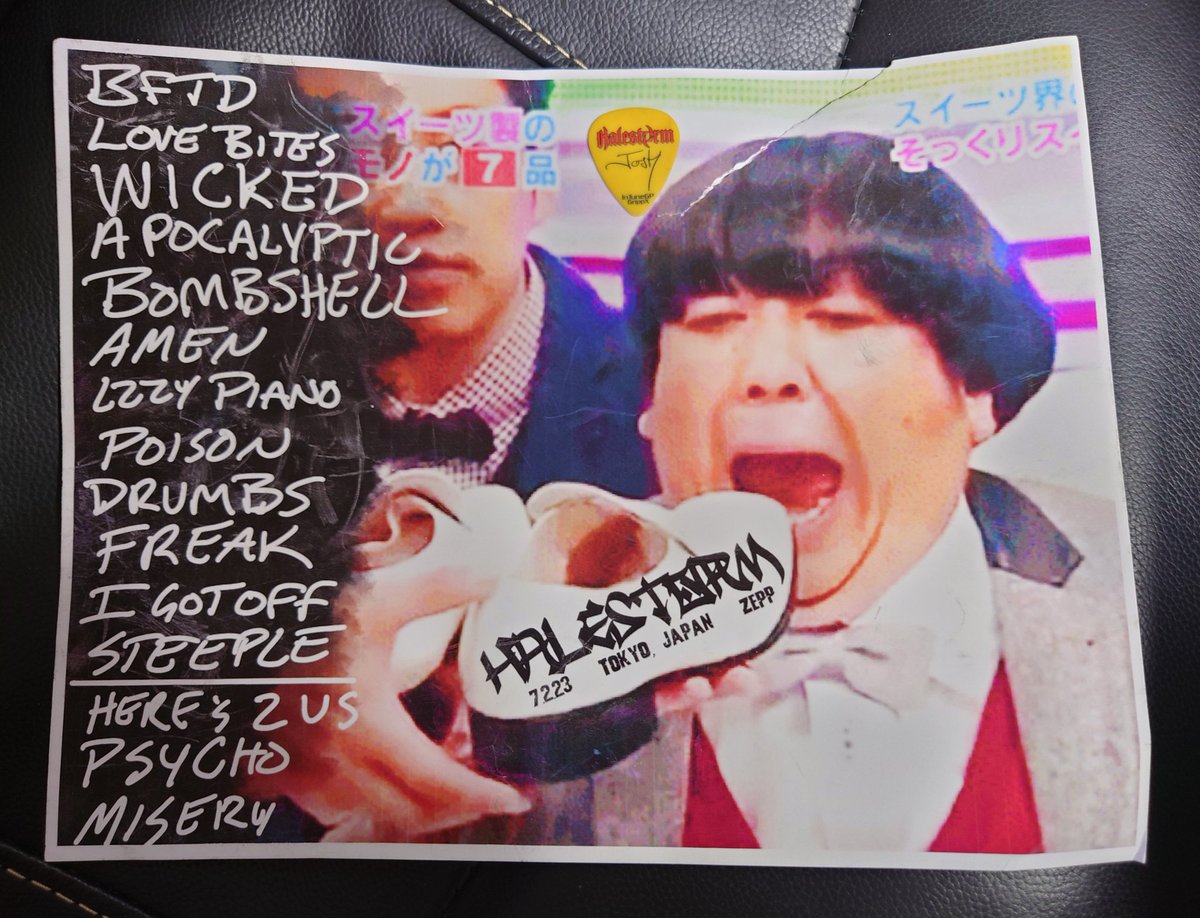 BFTD
LOVE BITES
WICKED
APOCALYPTIC
BOMBSHELL
AMEN
IZZY PIANO
POISON
DRUMBS
FREAK
I GOT OFF
STEEPLE
HERE'S 2 US
PSYCHO
MISERY
スイーツ製の
モノが7品
Halestorm
Josh
InTuneGP
GrippX
スイーツ界の
そっくりスイ
HALESTORM
7.2.23 TOKYO, JAPAN ZEPP